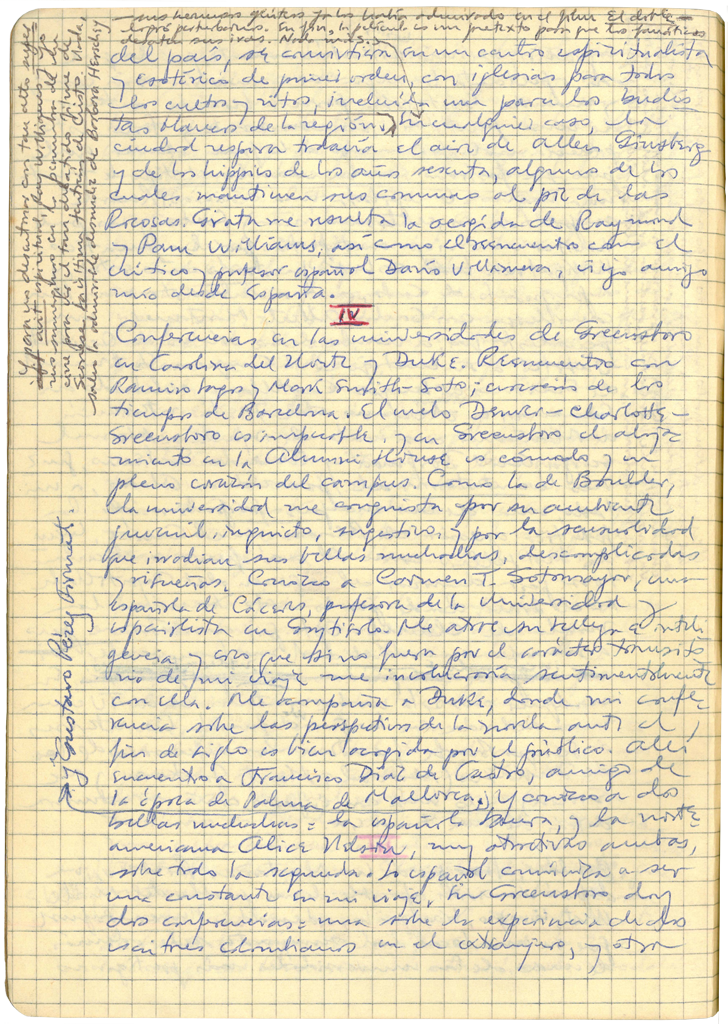 sus hermanos gústeres ya los había admirado en el film El
logró perturbarnos. En fin, la película es un pretexto para que los fanáticos
desatan sus iras. Nada más.
del país, se convirtiera en un centro espiritualista
y esotérico de primer orden, con iglesias para todos
los cultos y ritos, incluida una para los budis
tas blancos de la región. En cualquier caso, la
ciudad respira todavía el aire de Allen Ginsberg
y de los hippies de los años sesenta, algunos de los
cuales mantienen sus comunas al pie de las
Rocosas. Grata me resulta la acogida de Raymond
y Pam Williams, así como el reencuentro con el
crítico y profesor español Darío Villanueva, viejo amigo
mío desde España.
IV
Conferencias en las universidades de Greensboro
en Carolina del Norte y Duke. Reencuentro con
Ramiro Lagos y Mark Smith-Soto, de los
tiempos de Barcelona. El vuelo Denver-Charlotte-
Greensboro es impecable. y en Greensboro el aloja
miento en la Alumni House es cómodo y en
pleno corazón del campus. Como la de Boulder,
la universidad me conquista por su ambiente
juvenil, inquieto, sugestivo, y por la sensualidad
que irradian sus bellas muchachas, descomplicadas
y risueñas. Conozco a Carmen T. Sotomayor, una
española de Cáceres, profesora de la Universidad y
especialista en Goytisolo. Me atrae su belleza e inteli
gencia y creo que si no fuera por el carácter transito
rio de mi viaje me involucraría sentimentalmente
con ella. Me acompaña a Duke, donde mi confe-
rencia sobre las perspectivas de la novela ante el
fin de siglo es bien acogida por el público. Allí
encuentro a Francisco Díaz de Castro, amigo de
la época de Palma de Mallorca, y conozco a dos
bellas muchachas: la española y la norte
americana Alice Nelson, muy atractivas ambas,
sobre todo la segunda. Lo español comienza a ser
una constante en mi viaje. En Greensboro doy
dos conferencias: una sobre la experiencia de los
escritores colombianos en el extranjero, y otra
Y para no desentonar con tan alto
espiritual, Ray Williams y yo
nos sumergimos en la penumbra de un
cine para ver el tan debatido filme de
Scorsese La última tentación de Cristo.
salvo la admirable desnudez de Barbara Hershey
→ y Gustavo Pérez Firmat.